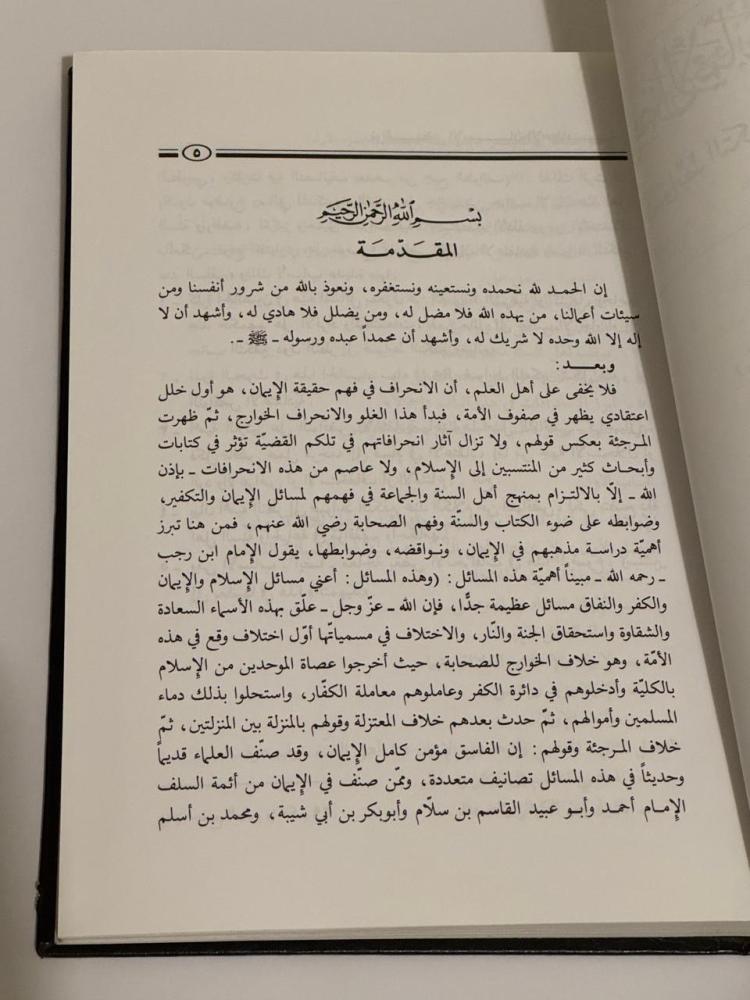 ٥
بسم الله الرحمن الرحيم
المقدّمة
إن الحمد لله نحمده ونستعينه ونستغفره، ونعوذ بالله من شرور أنفسنا ومن
سيئات أعمالنا، من يهده الله فلا مضل له، ومن يضلل فلا هادي له، وأشهد أن لا
إله إلا الله وحده لا شريك له، وأشهد أن محمداً عبده ورسوله ـ ﷺ ـ.
وبعـــد:
فلا يخفى على أهل العلم، أن الانحراف في فهم حقيقة الإيمان، هو أول خلل
اعتقادي يظهر في صفوف الأمة، فبدأ هذا الغلو والانحراف الخوارج، ثمّ ظهرت
المرجئة بعكس قولهم، ولا تزال آثار انحرافاتهم في تلكم القضيّة تؤثر في كتابات
وأبحاث كثير من المنتسبين إلى الإسلام، ولا عاصم من هذه الانحرافات ـ بإذن
الله ـ إلّا بالالتزام بمنهج أهل السنة والجماعة في فهمهم لمسائل الإيمان والتكفير،
وضوابطه على ضوء الكتاب والسنّة وفهم الصحابة رضي الله عنهم، فمن هنا تبرز
أهميّة دراسة مذهبهم في الإيمان، ونواقضه، وضوابطها، يقول الإمام ابن رجب
ـ رحمه الله ـ مبيناً أهميّة هذه المسائل: (وهذه المسائل: أعني مسائل الإسلام والإيمان
والكفر والنفاق مسائل عظيمة جدًّا، فإن الله ـ عزّ وجل ـ علّق بهذه الأسماء السعادة
والشقاوة واستحقاق الجنة والنّار، والاختلاف في مسمياتها أوّل اختلاف وقع في هذه
الأمّة، وهو خلاف الخوارج للصحابة، حيث أخرجوا عصاة الموحدين من الإسلام
بالكليّة وأدخلوهم في دائرة الكفر وعاملوهم معاملة الكفّار، واستحلوا بذلك دماء
المسلمين وأموالهم، ثمّ حدث بعدهم خلاف المعتزلة وقولهم بالمنزلة بين المنزلتين، ثمّ
خلاف المرجئة وقولهم: إن الفاسق مؤمن كامل الإيمان، وقد صنّف العلماء قديماً
وحديثاً في هذه المسائل تصانيف متعددة، وممّن صنّف في الإيمان من أئمة السلف
الإمام أحمد وأبو عبيد القاسم بن سلّام وأبوبكر بن أبي شيبة، ومحمد بن أسلم